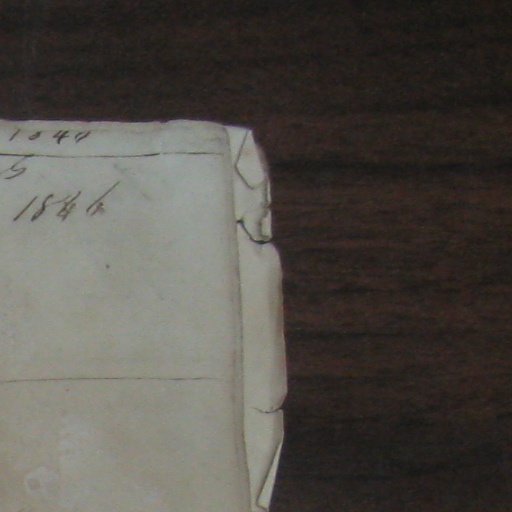 1840
5
1844